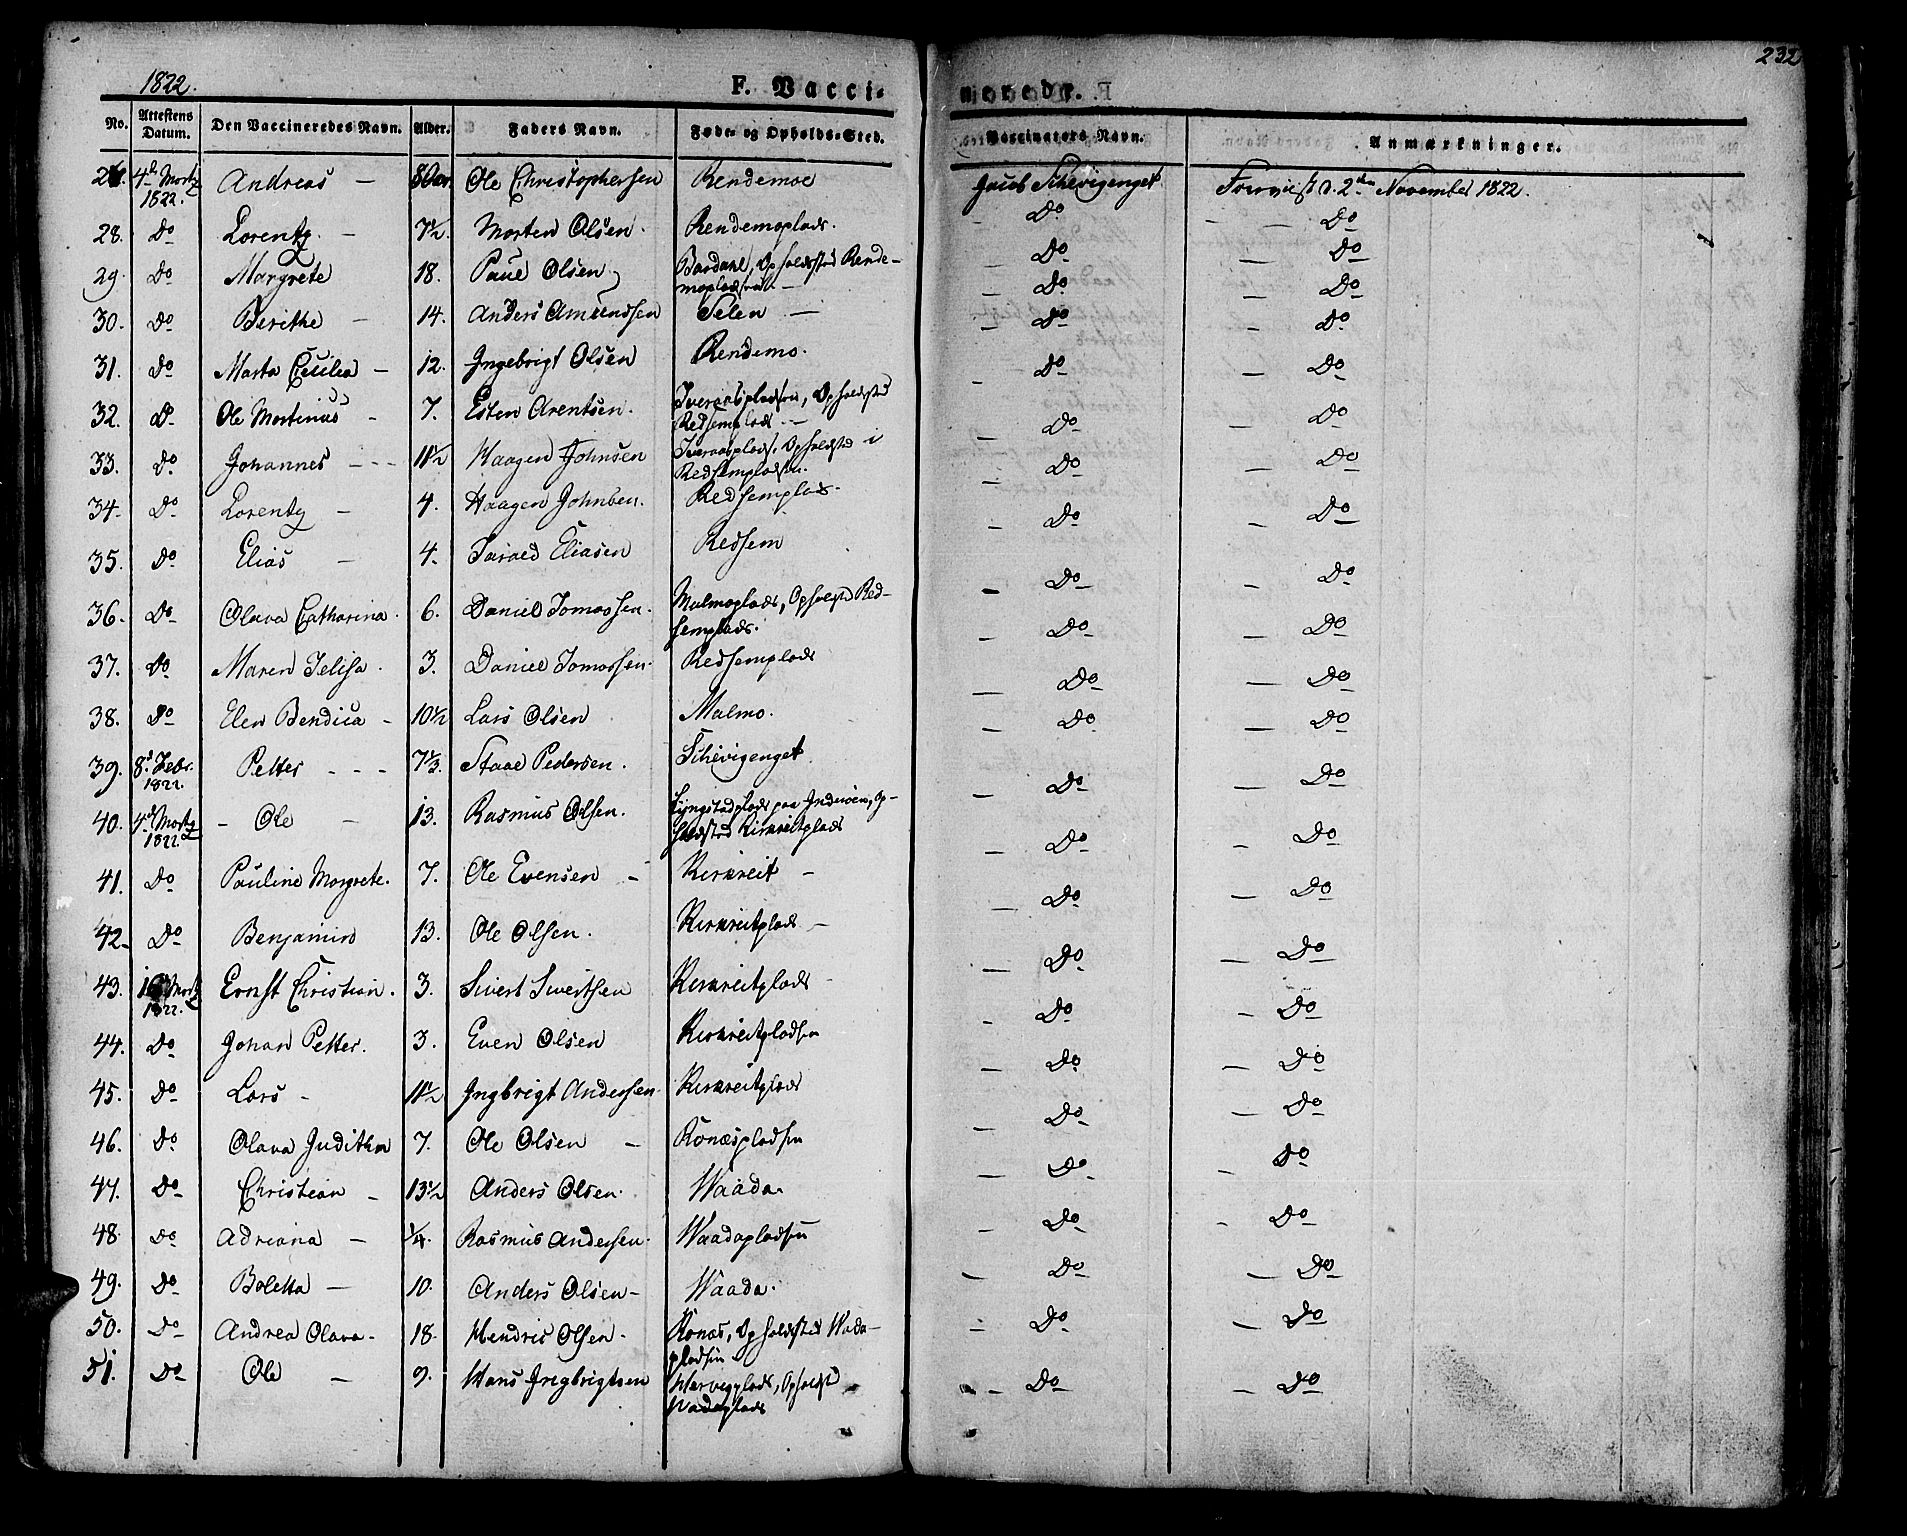 232
1822.
F. Vacci-
nerede.
No. Attestens Datum. Den Vaccineredes Navn. Alder. Faders Navn. Føde- og Opholds-Sted. Vaccinators Navn. Anmærkninger.
4de Martz 1822. Andreas - 8 Aar. Ole Christophersen Rendemoe
28. Do Lorentz. - 7½. Morten Olsen. Rendemoplads. - Do - Do
29. Do Margrete 18. Paul Olsen Bardahl, Opholdsted Rende-
moplads - - Do - Do
30. Do Berithe - 14. Anders Amundsen Selen - - Do - Do
31. Do Marta Cecilia - 12. Ingebrigt Olsen Rendemo. - Do - Do
32. Do Ole Martinus - 7. Esten Arentsen. Opholdsted
Redsemplads - - Do - Do
33. Do Johannes - - - 11½ Haagen Johnsen Opholdsted i
Redsempladsen. - Do - Do
34. Do Lorentz - 4. Haagen Johnsen. Redsemplads. - Do - Do
35. Do Elias - 4. Eliasen Redsem - Do - Do
36. Do Olava Catharina. 6. Daniel Tomassen. Malmoplads, Opholdsted Red-
semplads. - Do - Do
37. Do Maren Jelisa. 3. Daniel Tomassen. Redsemplads - Do - Do
38. Do Elen Bendica - 10½ Lars Olsen Malmo. - Do - Do
39. 8de Febr. 1822. Petter - - - 7⅓. Staael Pedersen. Schevigenget - Do - Do
40. 4de Martz 1822. - Ole - 13. Rasmus Olsen. Lyngstadplads paa Inderøen, Op-
holdsted Kirkreitplads - Do - Do
41. Do Pauline Margrete. 7. Ole Evensen - Kirkreit - - Do - Do
42. Do Benjamin 13. Ole Olsen. Kirkreitplads - - Do - Do
43. Martz 1822. Ernst Christian. 3. Sivert Sivertsen Kirkreitplads - - Do - Do
44. Do Johan Petter. 3. Even Olsen Kirkreitpladsen - Do - Do
45. Do Lars - 11½ Ingbrigt Andersen. Kirkreitplads - Do - Do
46. Do Olava Juditha 7. Ole Olsen - Ronæspladsen - Do - Do
47. Do Christian - 13½ Anders Olsen. Waada. - Do - Do
48. Do Adriana - ¼. Rasmus Andersen. Waadapladsen - Do - Do
49. Do Boletta - 10. Anders Olsen - Waada. - Do - Do
50. Do Andrea Olava - 18. Hendric Olsen. Ronæs, Opholdsted Wada-
pladsen - Do - Do
51. Do Ole - 9. Hans Ingbrigtsen Opholdsted
Wadaplads - Do - Do
Jacob Schevigenget
2den November 1822.